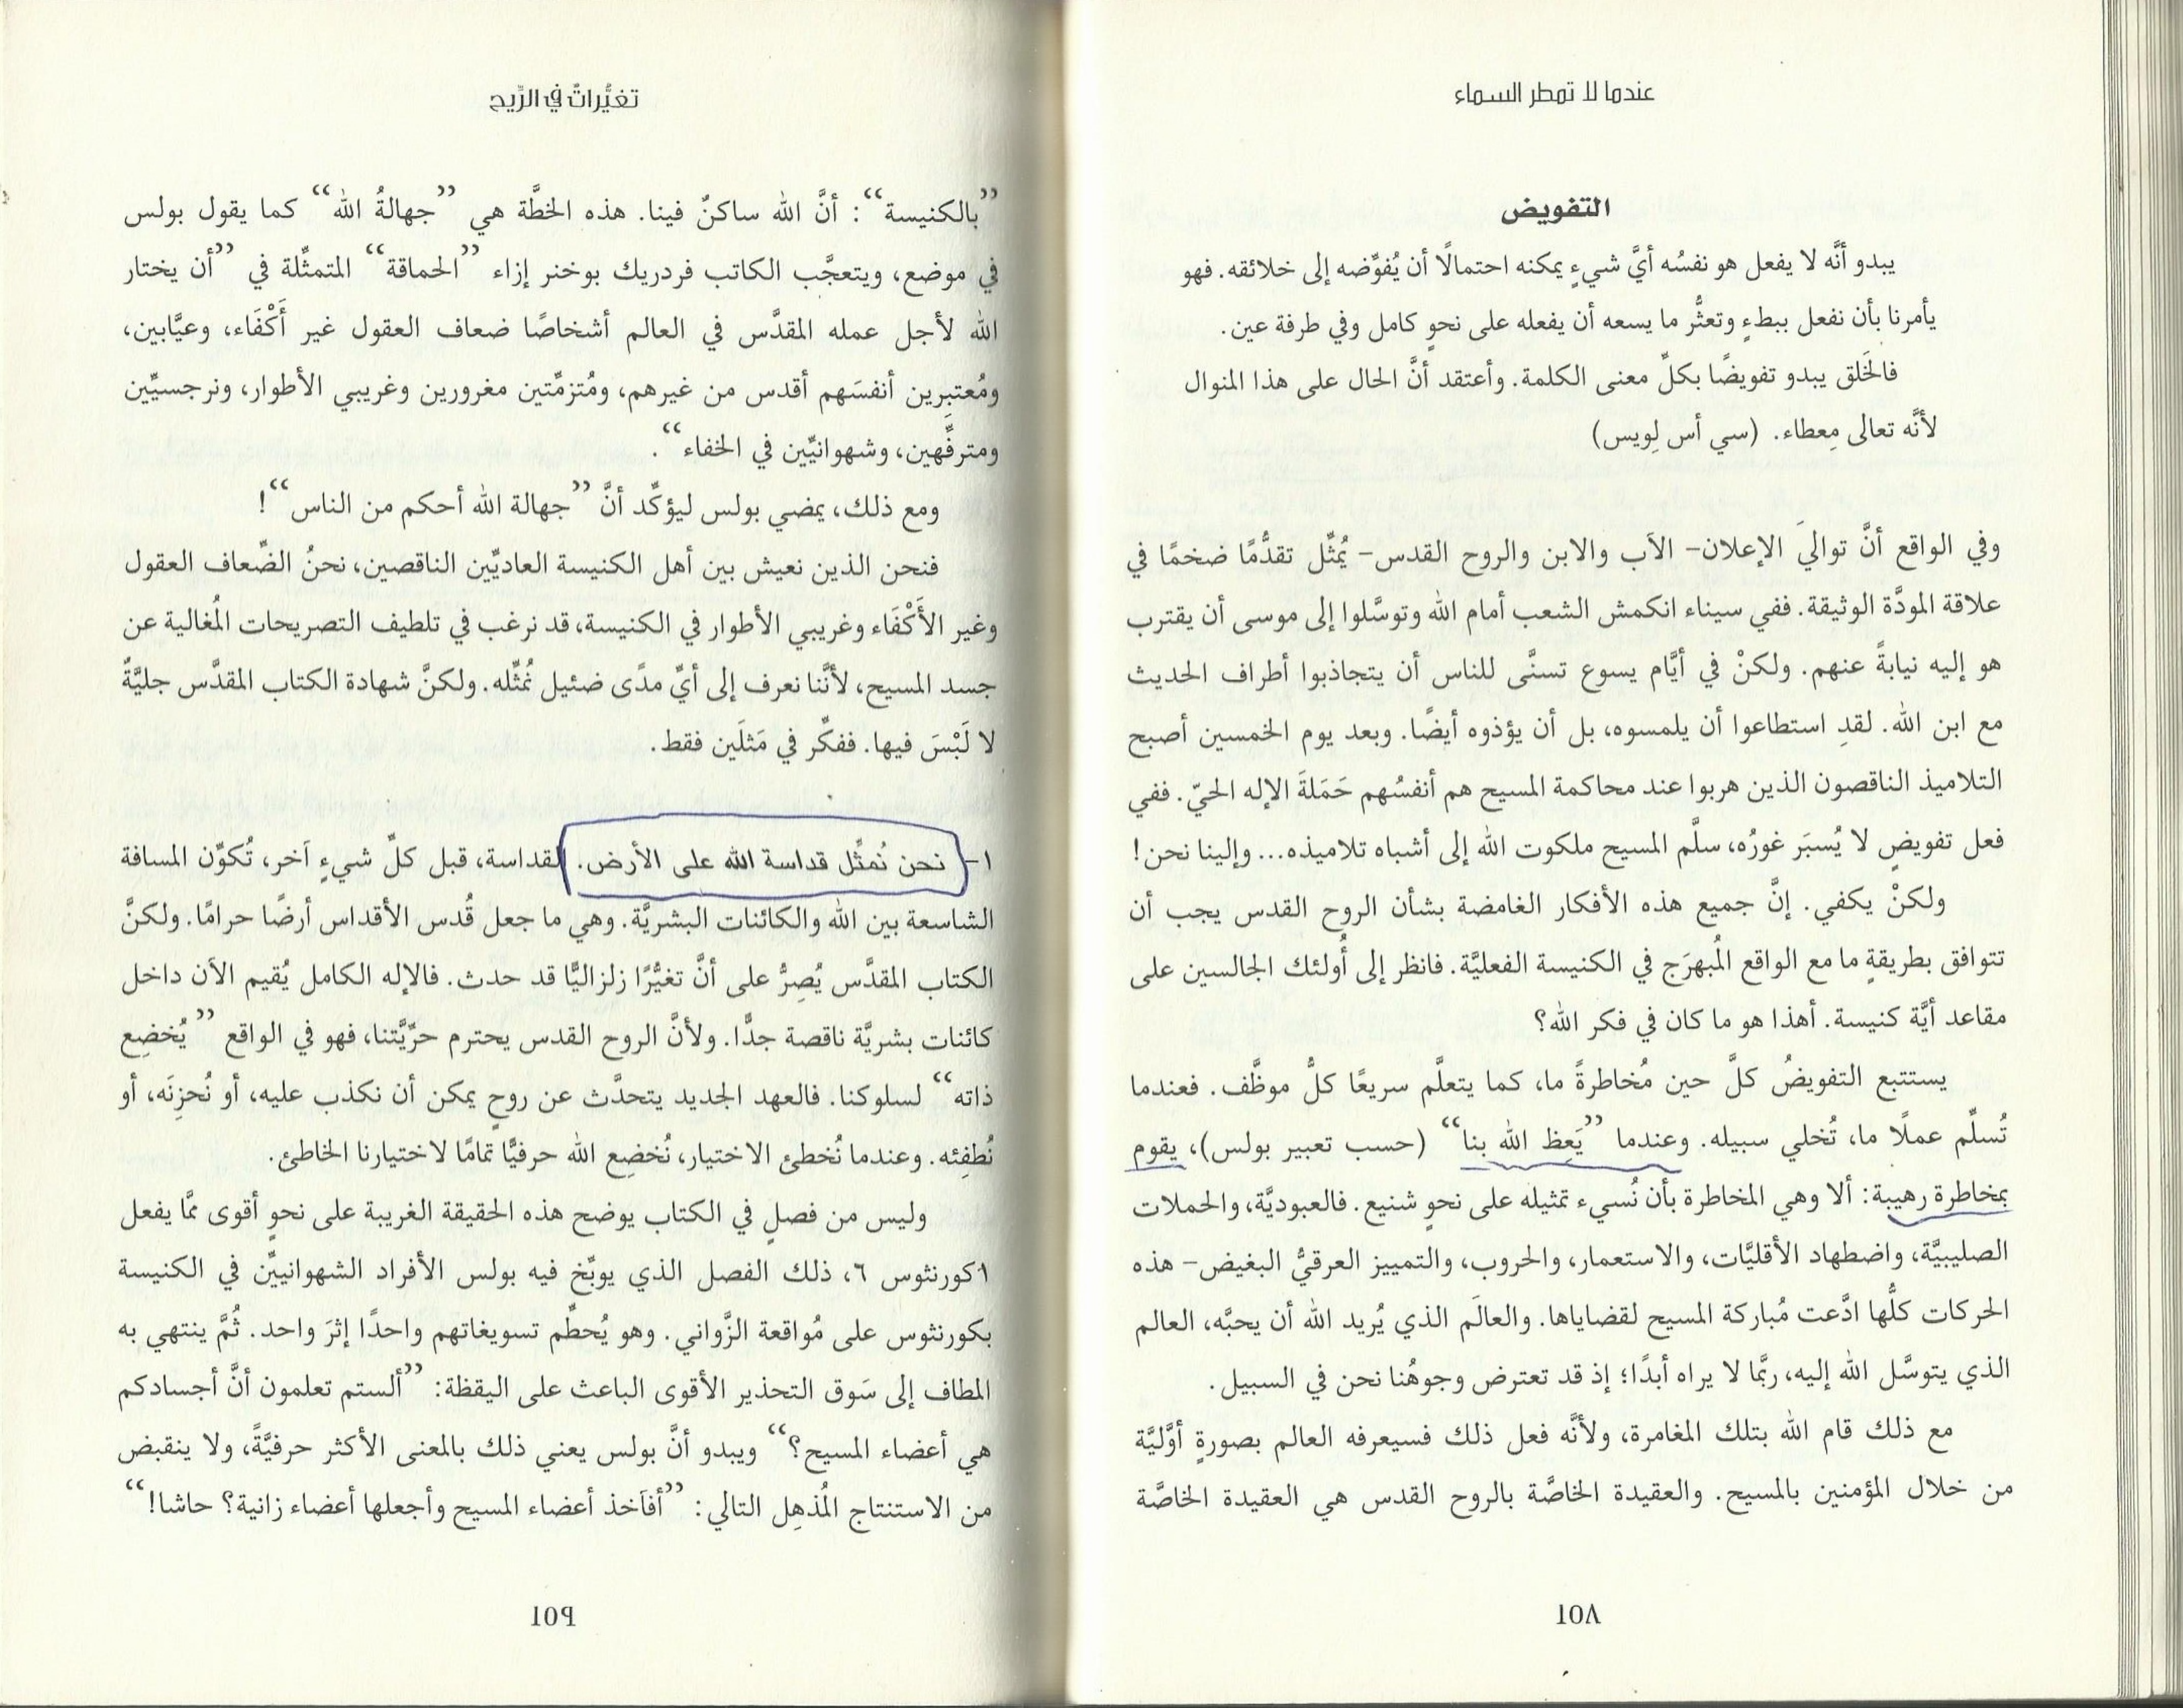 عندما لا تمطر السماء
التفويض
يبدو أنَّه لا يفعل هو نفسُه أيَّ شيءٍ يمكنه احتمالًا أن يُفوِّضه إلى خلائقه. فهو
يأمرنا بأن نفعل ببطءٍ وتعثُّر ما يسعه أن يفعله على نحوٍ كامل وفي طرفة عين.
فالخَلق يبدو تفويضًا بكلِّ معنى الكلمة. وأعتقد أنَّ الحال على هذا المنوال
لأنَّه تعالى مِعطاء. (سي أس لِويس)
وفي الواقع أنَّ تواليَ الإعلان- الآب والابن والروح القدس- يُمثِّل تقدُّمًا ضخمًا في
علاقة المودَّة الوثيقة. ففي سيناء انكمش الشعب أمام الله وتوسَّلوا إلى موسى أن يقترب
هو إليه نيابةً عنهم. ولكنْ في أيَّام يسوع تسنَّى للناس أن يتجاذبوا أطراف الحديث
مع ابن الله. لقدِ استطاعوا أن يلمسوه، بل أن يؤذوه أيضًا. وبعد يوم الخمسين أصبح
التلاميذ الناقصون الذين هربوا عند محاكمة المسيح هم أنفسُهم حَمَلةَ الإله الحيّ. ففي
فعل تفويضٍ لا يُسبَر غورُه، سلَّم المسيح ملكوت الله إلى أشباه تلاميذه... وإلينا نحن!
ولكنْ يكفي. إنَّ جميع هذه الأفكار الغامضة بشأن الروح القدس يجب أن
تتوافق بطريقةٍ ما مع الواقع المُبهرَج في الكنيسة الفعليَّة. فانظر إلى أُولئك الجالسين على
مقاعد أيَّة كنيسة. أهذا هو ما كان في فكر الله؟
يستتبع التفويضُ كلَّ حين مُخاطرةً ما، كما يتعلَّم سريعًا كلُّ موظَّف. فعندما
تُسلِّم عملًا ما، تُخلي سبيله. وعندما ”يَعِظ الله بنا“ (حسب تعبير بولس)، يقوم
بمخاطرة رهيبة: ألا وهي المخاطرة بأن نُسيء تمثيله على نحوٍ شنيع. فالعبوديَّة، والحملات
الصليبيَّة، واضطهاد الأقليَّات، والاستعمار، والحروب، والتمييز العرقيُّ البغيض- هذه
الحركات كلُّها ادَّعت مُباركة المسيح لقضاياها. والعالَم الذي يُريد الله أن يحبَّه، العالم
الذي يتوسَّل الله إليه، ربَّما لا يراه أبدًا؛ إذ قد تعترض وجوهُنا نحن في السبيل.
مع ذلك قام الله بتلك المغامرة، ولأنَّه فعل ذلك فسيعرفه العالم بصورةٍ أوَّليَّة
من خلال المؤمنين بالمسيح. والعقيدة الخاصَّة بالروح القدس هي العقيدة الخاصَّة
١٥٨
تغيُّراتٌ في الرِّيح
”بالكنيسة“: أنَّ الله ساكنٌ فينا. هذه الخطَّة هي ”جهالةُ الله“ كما يقول بولس
في موضع، ويتعجَّب الكاتب فردريك بوخنر إزاء ”الحماقة“ المتمثِّلة في ”أن يختار
الله لأجل عمله المقدَّس في العالم أشخاصًا ضعاف العقول غير أَكْفَاء، وعيَّابين،
ومُعتبِرين أنفسَهم أقدس من غيرهم، ومُتزمِّتين مغرورين وغريبي الأطوار، ونرجسيِّين
ومترفِّهين، وشهوانيِّين في الخفاء“.
ومع ذلك، يمضي بولس ليؤكِّد أنَّ ”جهالة الله أحكم من الناس“!
فنحن الذين نعيش بين أهل الكنيسة العاديِّين الناقصين، نحنُ الضِّعاف العقول
وغير الأَكْفَاء وغريبي الأطوار في الكنيسة، قد نرغب في تلطيف التصريحات المُغالية عن
جسد المسيح، لأنَّنا نعرف إلى أيِّ مدًى ضئيل نُمثِّله. ولكنَّ شهادة الكتاب المقدَّس جليَّةٌ
لا لَبْسَ فيها. ففكِّر في مَثلَين فقط.
١- نحن نُمثِّل قداسة الله على الأرض. القداسة، قبل كلِّ شيءٍ آخر، تُكوِّن المسافة
الشاسعة بين الله والكائنات البشريَّة. وهي ما جعل قُدس الأقداس أرضًا حرامًا. ولكنَّ
الكتاب المقدَّس يُصِرُّ على أنَّ تغيُّرًا زلزاليًّا قد حدث. فالإله الكامل يُقيم الآن داخل
كائنات بشريَّة ناقصة جدًّا. ولأنَّ الروح القدس يحترم حرِّيَّتنا، فهو في الواقع ”يُخضِع
ذاته“ لسلوكنا. فالعهد الجديد يتحدَّث عن روحٍ يمكن أن نكذب عليه، أو نُحزِنَه، أو
نُطفِئه. وعندما نُخطئ الاختيار، نُخضِع الله حرفيًّا تمامًا لاختيارنا الخاطئ.
وليس من فصلٍ في الكتاب يوضح هذه الحقيقة الغريبة على نحوٍ أقوى ممَّا يفعل
١كورنثوس ٦، ذلك الفصل الذي يوبِّخ فيه بولس الأفراد الشهوانيِّين في الكنيسة
بكورنثوس على مُواقعة الزَّواني. وهو يُحطِّم تسويغاتهم واحدًا إثرَ واحد. ثُمَّ ينتهي به
المطاف إلى سَوق التحذير الأقوى الباعث على اليقظة: ”ألستم تعلمون أنَّ أجسادكم
هي أعضاء المسيح؟“ ويبدو أنَّ بولس يعني ذلك بالمعنى الأكثر حرفيَّةً، ولا ينقبض
من الاستنتاج المُذهِل التالي: ”أفآخذ أعضاء المسيح وأجعلها أعضاء زانية؟ حاشا!“
١٥٩